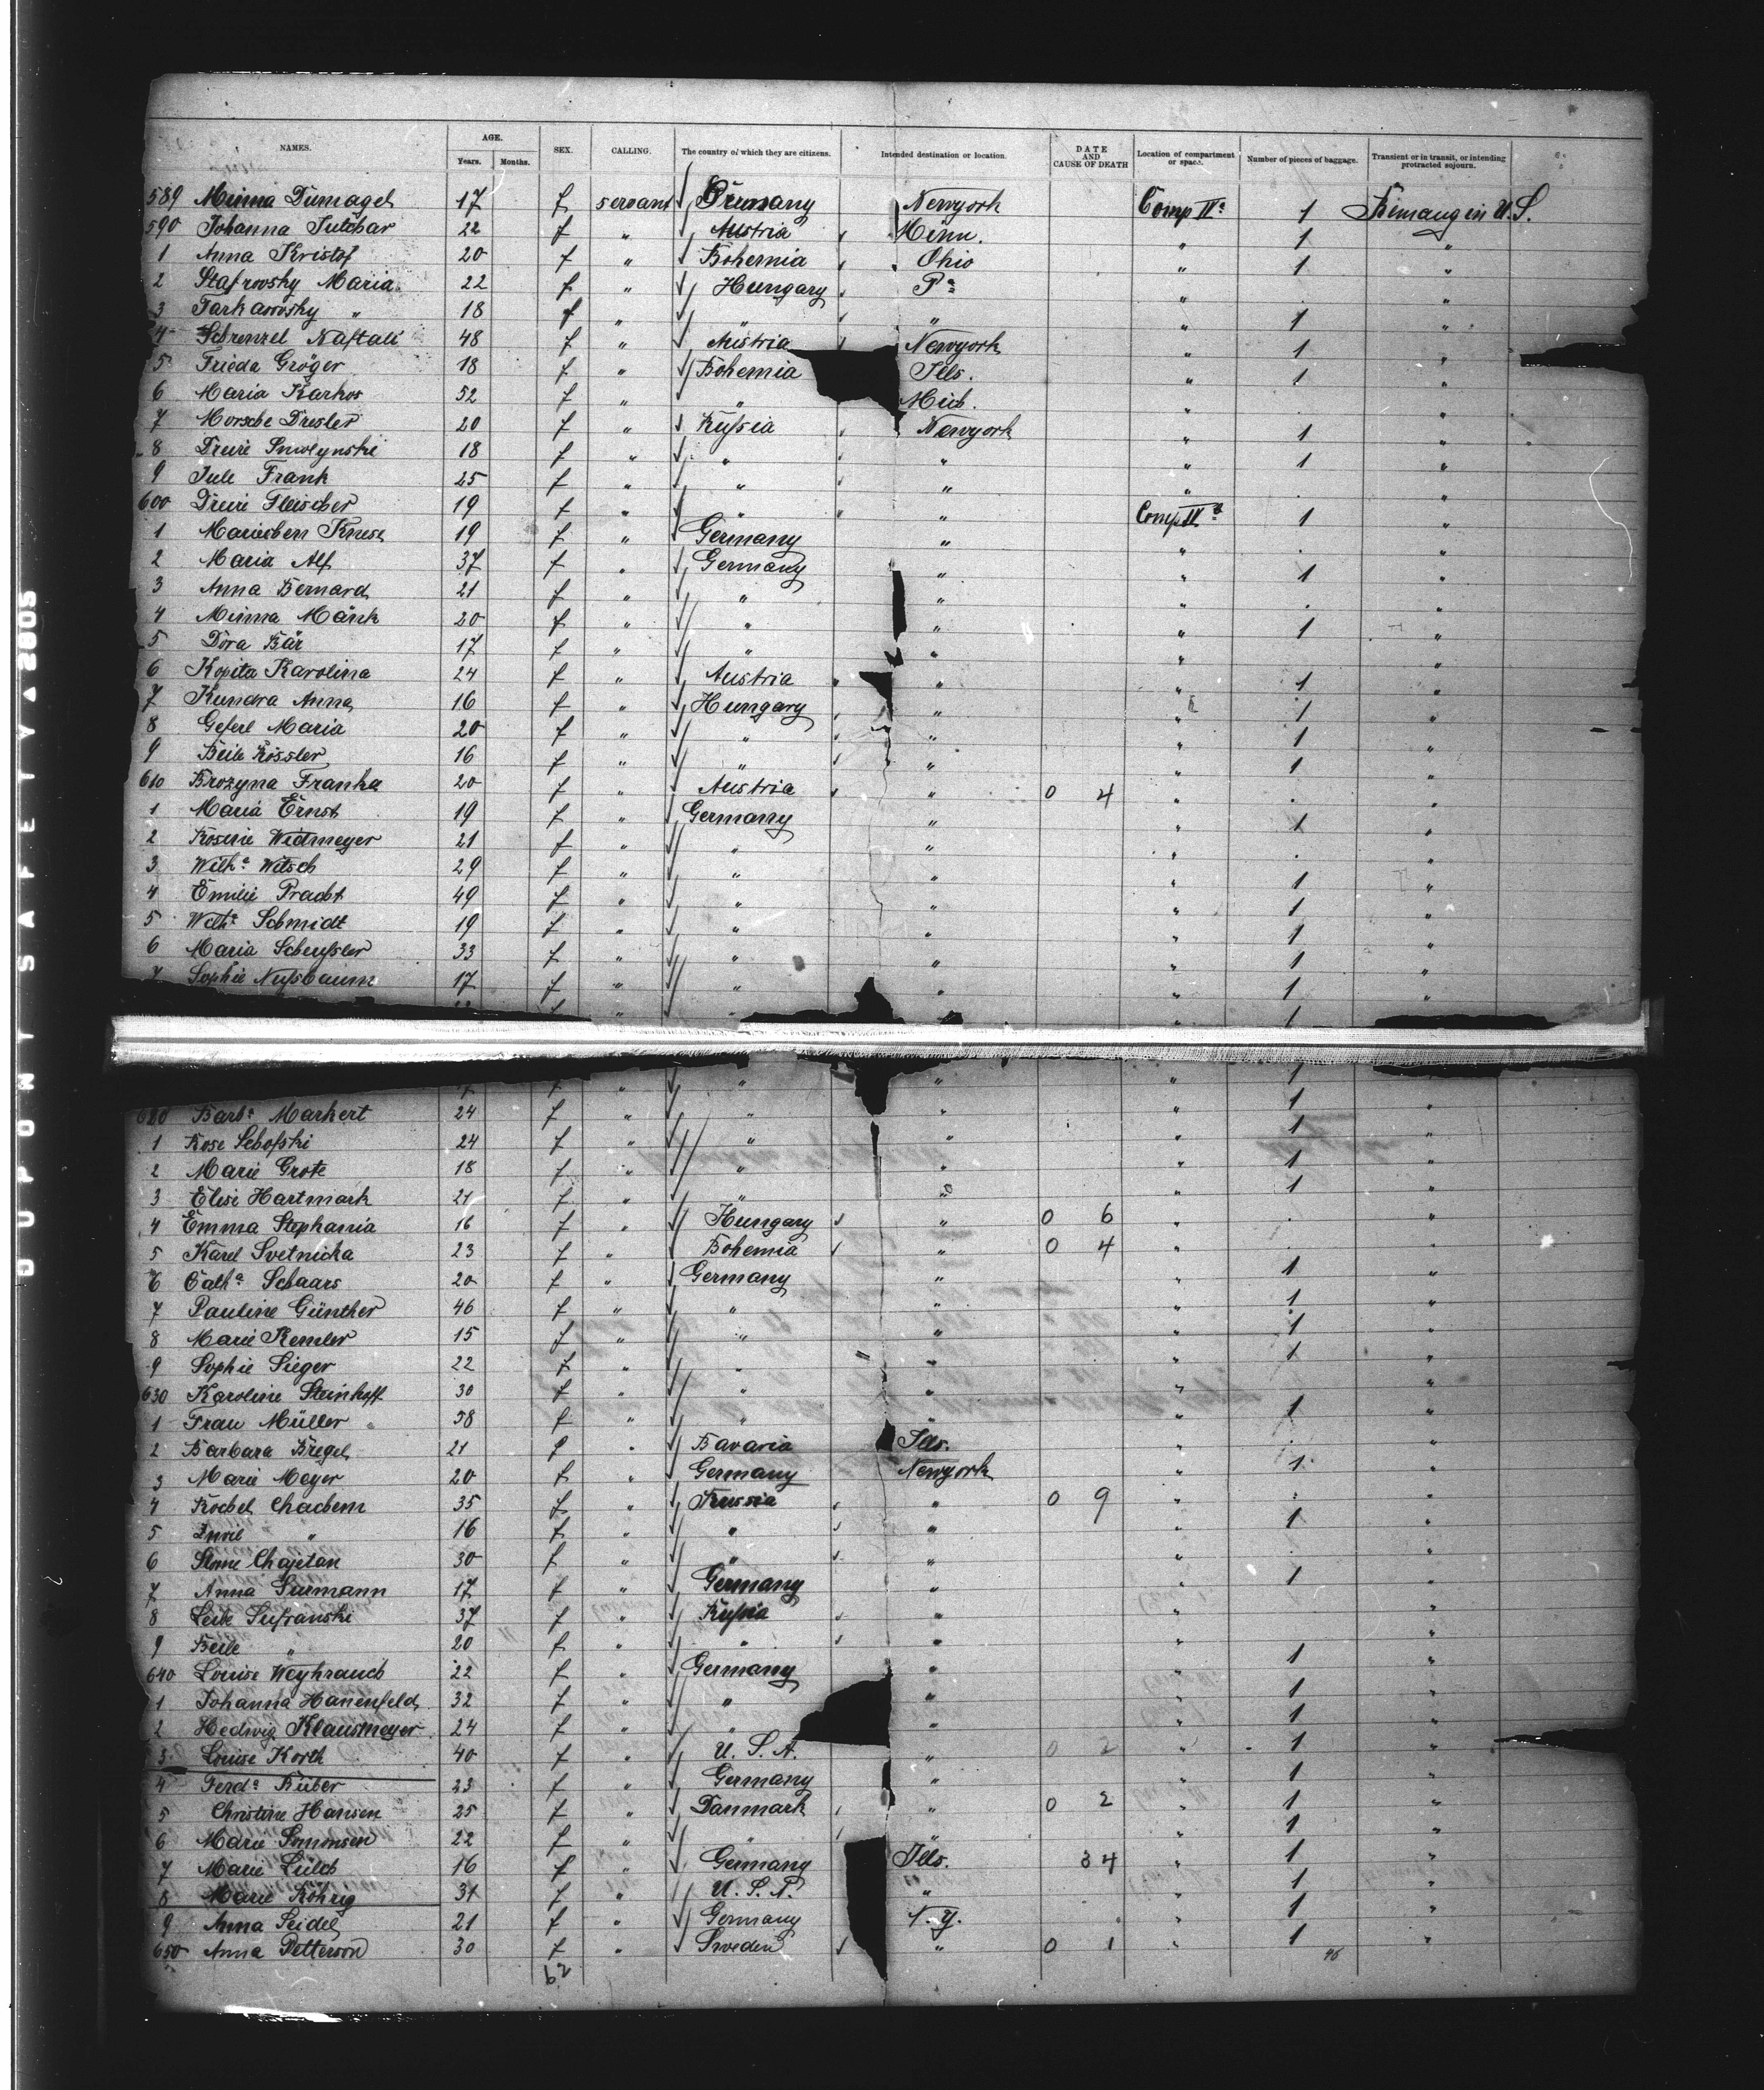 NAMES. AGE. Years. Months. SEX. CALLING. The country of which they are citizens. Intended destination or location. DATE AND CAUSE OF DEATH Location of compartment or space. Number of pieces of baggage. Transient or in transit, or intending protracted sojourn.
589 Minna 17 f servant Germany Newyork Comp IV a 1 U.S.
590 Johanna Sutchar 22 f " Austria Minn. " 1 "
1 Anna Kristof 20 f " Bohemia Ohio " 1 "
2 Stafrovsky Maria 22 f " Hungary Pa " "
3 Tarkawosky " 18 f " " " " 1 "
4 Schrenzel Naftali 48 f " Austria Newyork " 1 "
5 Frieda Gröger 18 f " Bohemia Ills. " 1 "
6 Maria Karkos 52 f " " Mich. " "
7 Morsche Dresler 20 f " Russia Newyork " 1 "
8 Smolynski 18 f " " " " 1 "
9 Jule Frank 25 f " " " " "
600 Fleischer 19 f " " " Comp IV a 1 "
1 Knese 19 f " Germany " " "
2 Maria Alf 37 f " Germany " " 1 "
3 Anna Bernard 21 f " " " " "
4 Minna Mänk 20 f " " " " 1 "
5 Dora Bär 17 f " " " " "
6 Kopita Karolina 24 f " Austria " " 1 "
7 Kundra Anna 16 f " Hungary " " 1 "
8 Geferl Maria 20 f " " " " 1 "
9 Beile Rössler 16 f " " " " 1 "
610 Brozyna Franka 20 f " Austria " 0 4 " "
1 Maria Ernst 19 f " Germany " " 1 "
2 Rosine Widmeyer 21 f " " " " "
3 Wilh a Witsch 29 f " " " " 1 "
4 Emilie Pracht 49 f " " " " 1 "
5 Wilh a Schmidt 19 f " " " " 1 "
6 Maria Scheussler 33 f " " " " 1 "
7 Sophie Nussbaum 17 f " " " " 1 "
f " " " 1
f " " " " 1
620 Barb a Markert 24 f " " " " 1 "
1 Rose Schofski 24 f " " " " 1 "
2 Marie Grote 18 f " " " " 1 "
3 Elise Hartmark 21 f " " " " 1 "
4 Emma Stephania 16 f " Hungary " 0 6 " "
5 Karel Svetnicka 23 f " Bohemia " 0 4 " "
6 Cath a Schaars 20 f " Germany " " 1 "
7 Pauline Günther 46 f " " " " 1 "
8 Marie Remler 15 f " " " " 1 "
9 Sophie Sieger 22 f " " " " 1 "
630 Karoline Steinhoff 30 f " " " " "
1 Frau Müller 58 f " " " " 1 "
2 Barbara Bregel 21 f " Bavaria Ills. " "
3 Marie Meyer 20 f " Germany Newyork " 1 "
4 Rochel Chachem 35 f " Russia " 0 9 " "
5 " 16 f " " " 1 "
6 Slome Chajetan 30 f " " " " "
7 Anna Surmann 17 f " Germany " " 1 "
8 Leibe Sufranski 37 f " Russia " " "
9 Beile " 20 f " " " " 1 "
640 Louise Weyhrauch 22 f " Germany " 1 "
1 Johanna Hanenfeld 32 f " " " " 1 "
2 Hedwig Klausmeyer 24 f " " " " 1 "
3 Louise Korth 40 f " U.S.A. " 0 2 " 1 "
4 Ferd a Büber 23 f " Germany " " 1 "
5 Christine Hansen 25 f " Danmark " 0 2 " 1 "
6 Marie Somonsen 22 f " " " " 1 "
7 Marie Lülch 16 f " Germany Ills. 34 " 1 "
8 Marie Röhrig 31 f " U.S.A. " " 1 "
9 Anna Seidel 21 f " Germany N.Y. " 1 "
650 Anna Petterson 30 f " Sweden " 0 1 " 1 "
62 46
DUPONT SAFETY